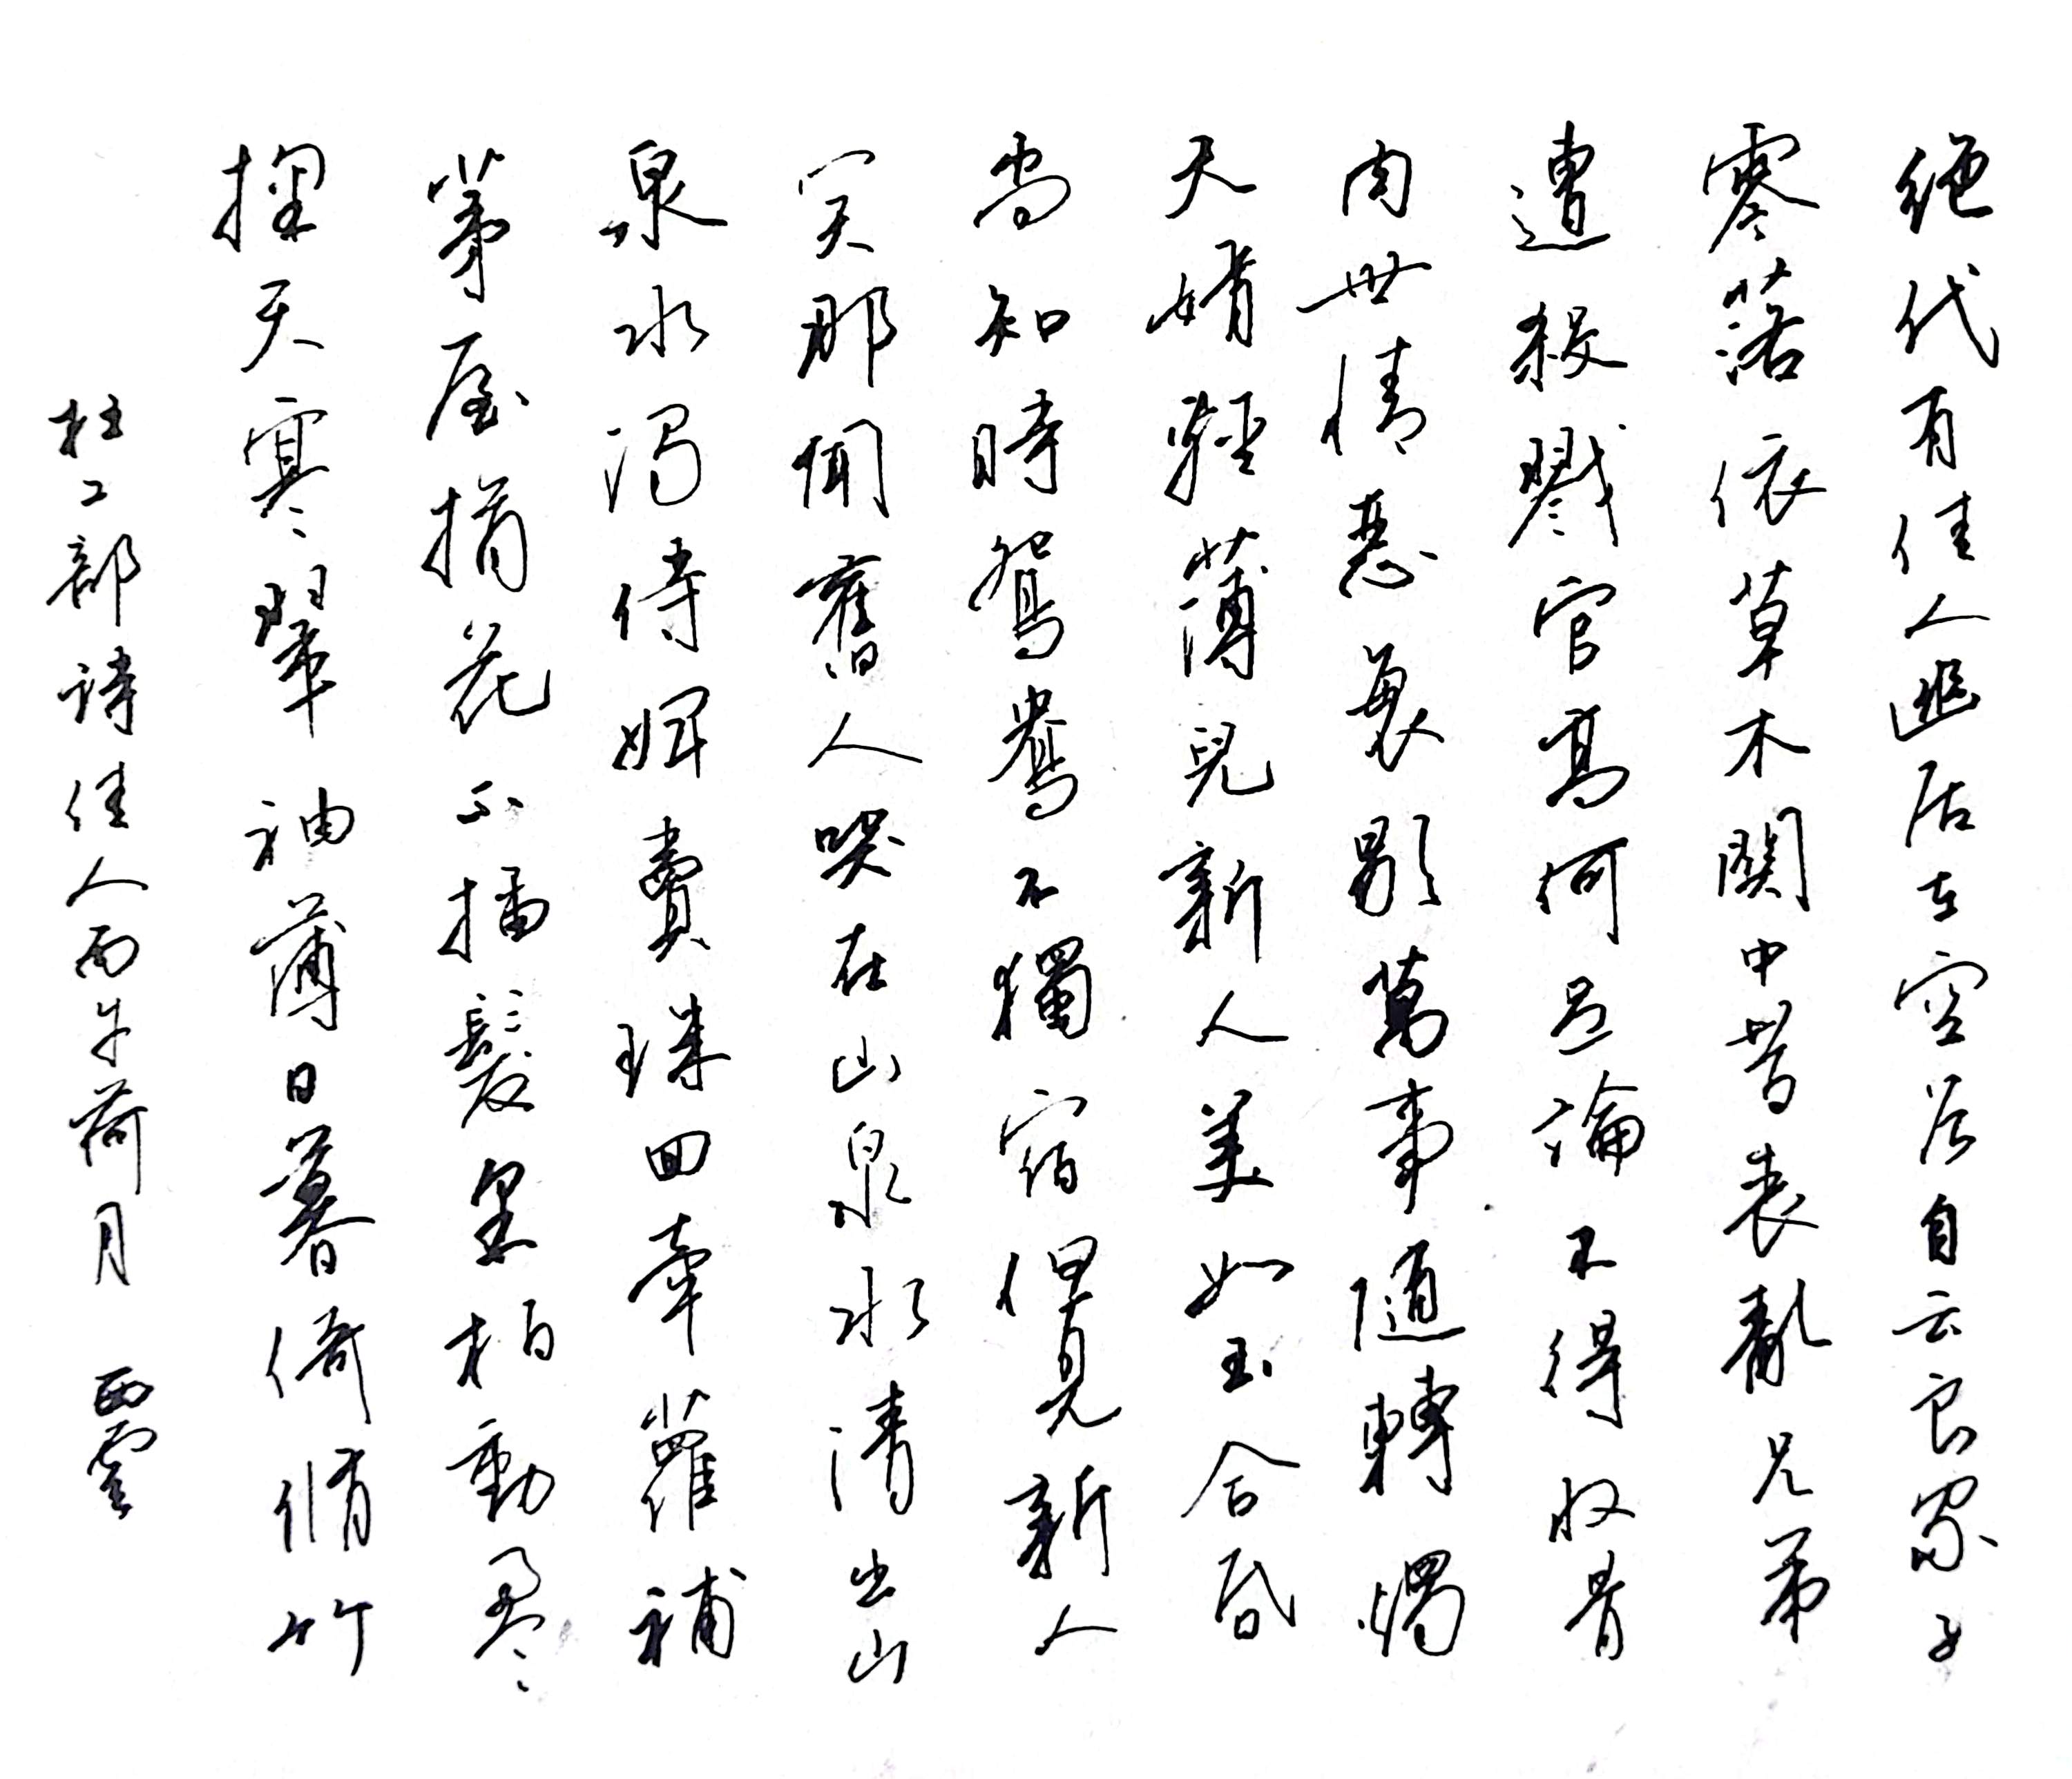 絕代有佳人幽居在空谷自云良家子
零落依草木關中昔喪亂兄弟
遭殺戮官高何足論不得收骨
肉世情惡衰歇萬事隨轉燭
夫婿輕薄兒新人美如玉合昏
尚知時鴛鴦不獨宿但見新人
笑那聞舊人哭在山泉水清出山
泉水濁侍婢賣珠回牽蘿補
茅屋摘花不插髮采柏動盈
掬天寒翠袖薄日暮倚脩竹
杜工部詩佳人丙午荷月 西雲